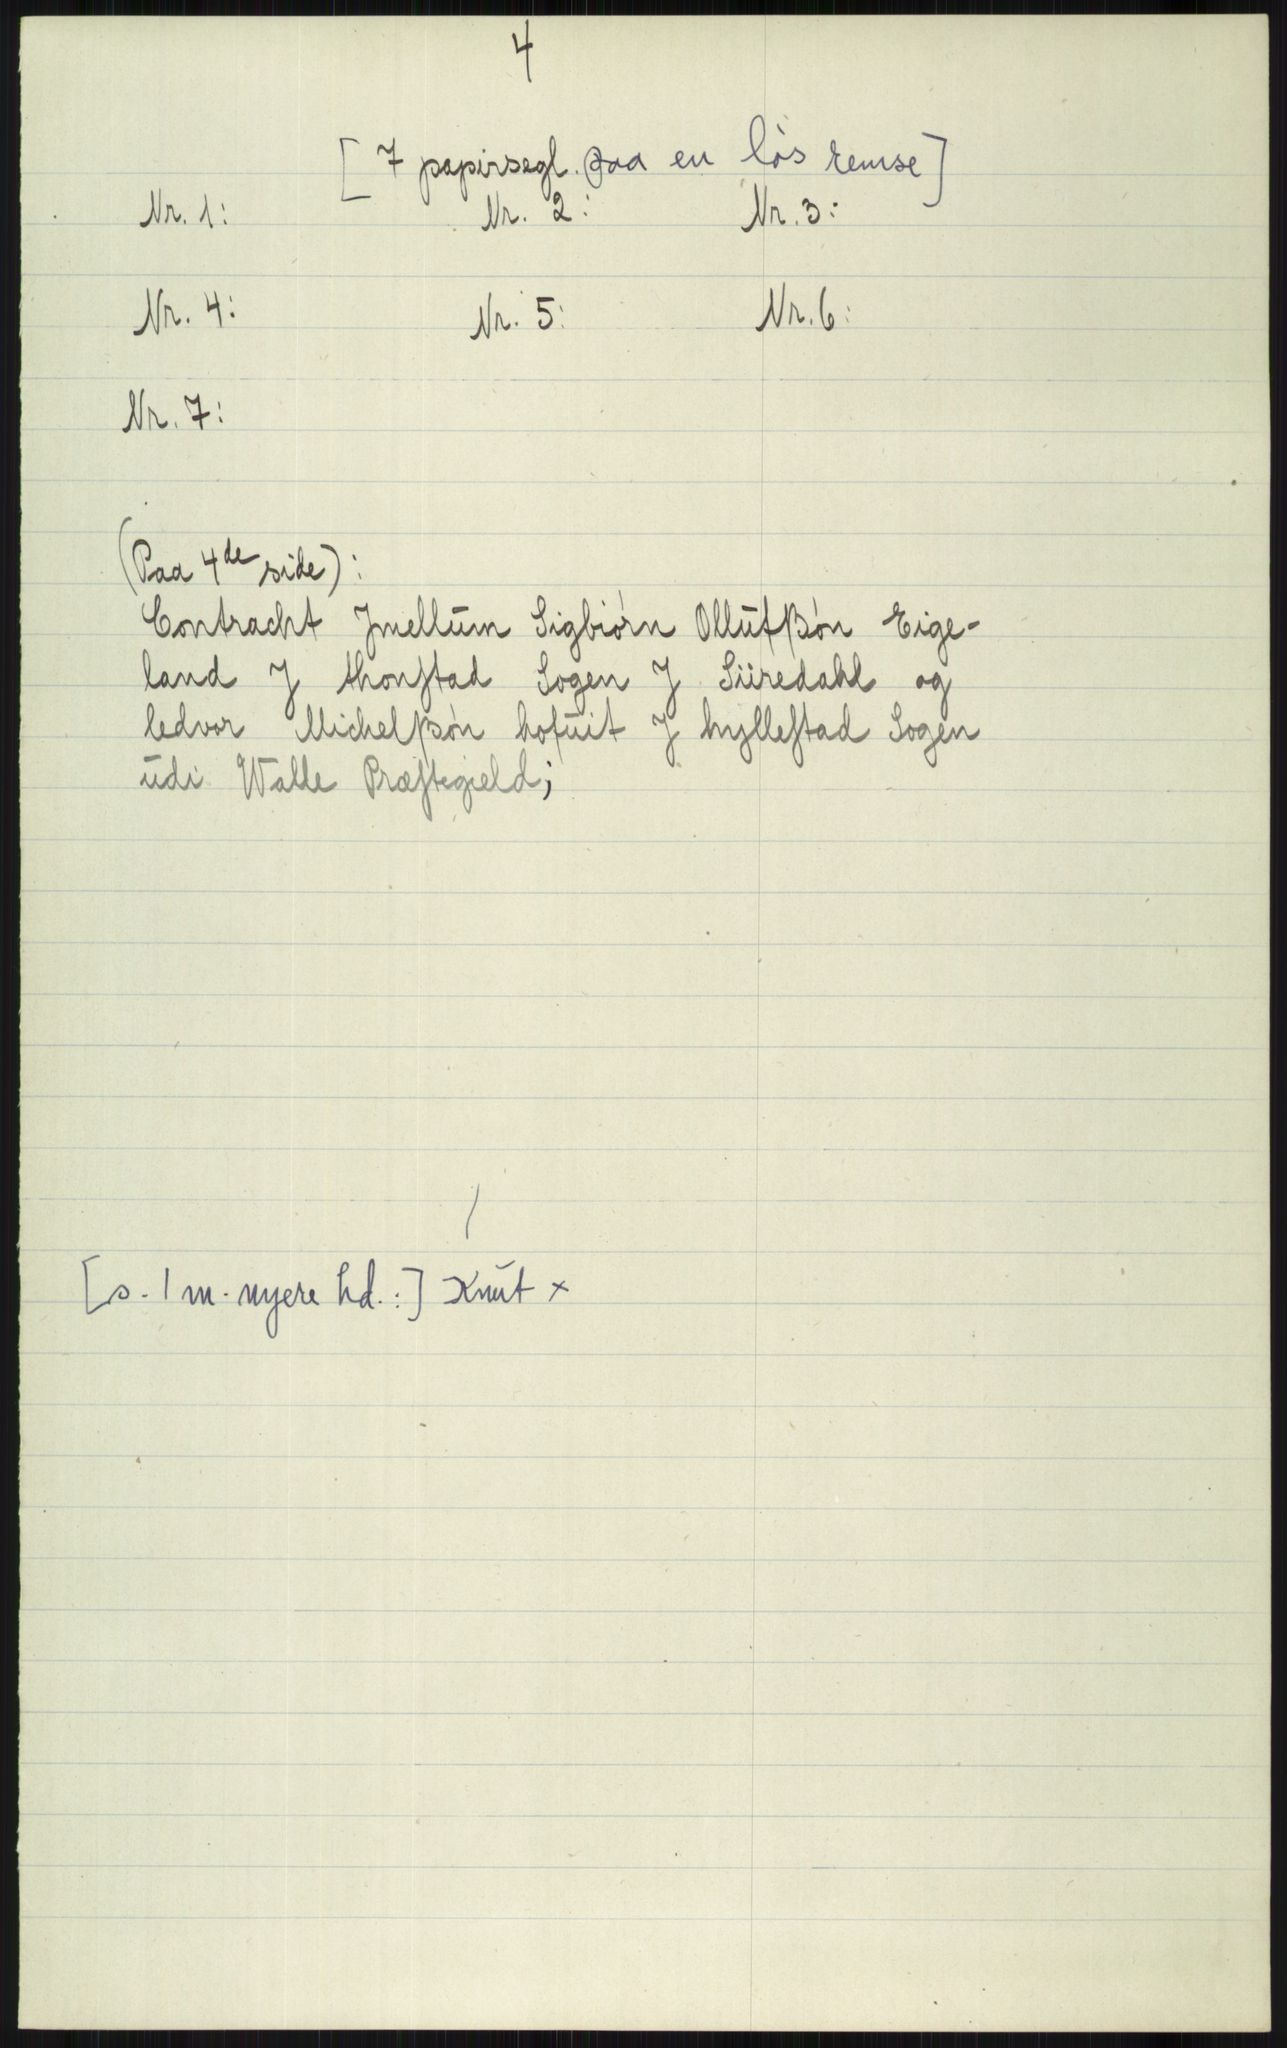 4
[7 papirsegl. paa en lös remse]
Nr. 1: Nr. 2: Nr. 3:
Nr. 4: Nr. 5: Nr. 6:
Nr. 7:
(Paa 4de side):
Contracht Jmellum Sigbiórn Ollufßón Eige-
land J thonstad Sogen J Siiredahl og
ledvor Michelßón hofuit J hyllestad Sogen
udi Walle Præstegield;
[s. 1 m. nyere hd.:] Knut ×